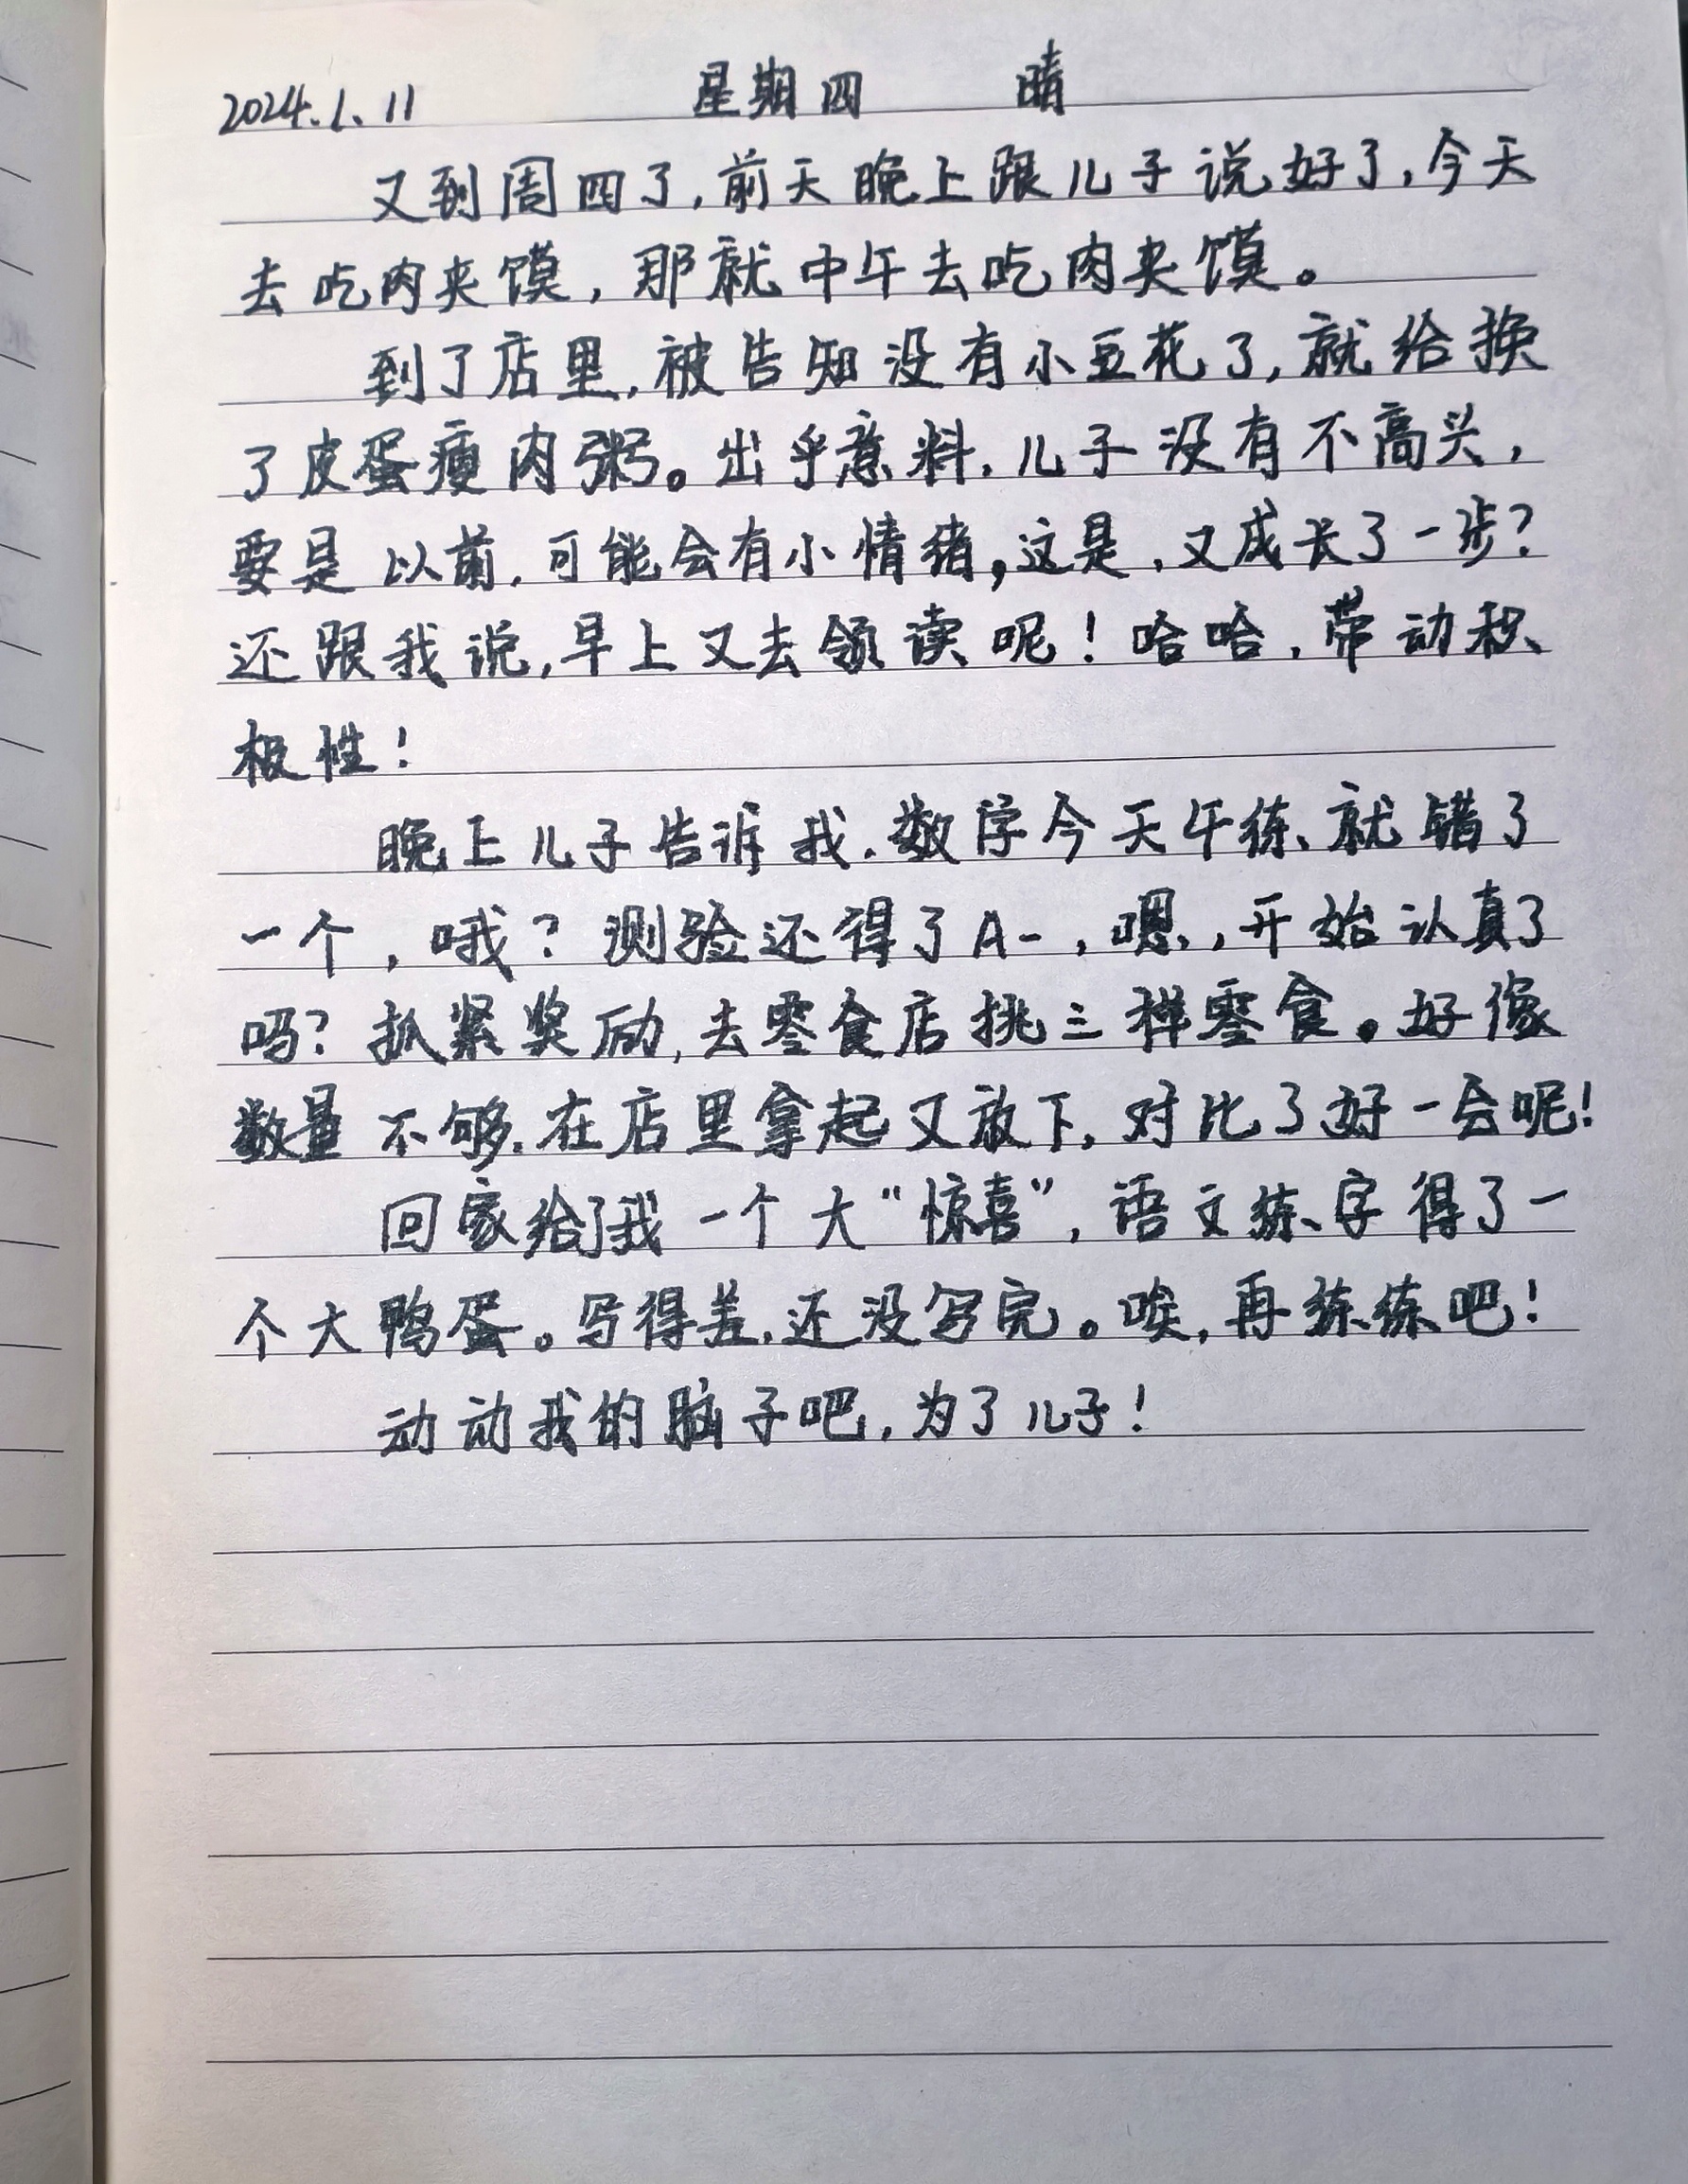 2024.1.11 星期四 晴
又到周四了,前天晚上跟儿子说好了,今天
去吃肉夹馍,那就中午去吃肉夹馍。
到了店里,被告知没有小豆花了,就给换
了皮蛋瘦肉粥。出乎意料,儿子没有不高兴,
要是以前,可能会有小情绪,这是,又成长了一步?
还跟我说,早上又去领读呢!哈哈,带动积
极性!
晚上儿子告诉我,数学今天午练、就错了
一个,哦?测验还得了A-,嗯,,开始认真了
吗?抓紧奖励,去零食店挑三样零食。好像
数量不够,在店里拿起又放下,对比了好一会呢!
回家给了我一个大“惊喜”,语文练字得了一
个大鸭蛋。写得差,还没写完。唉,再练练吧!
动动我的脑子吧,为了儿子!